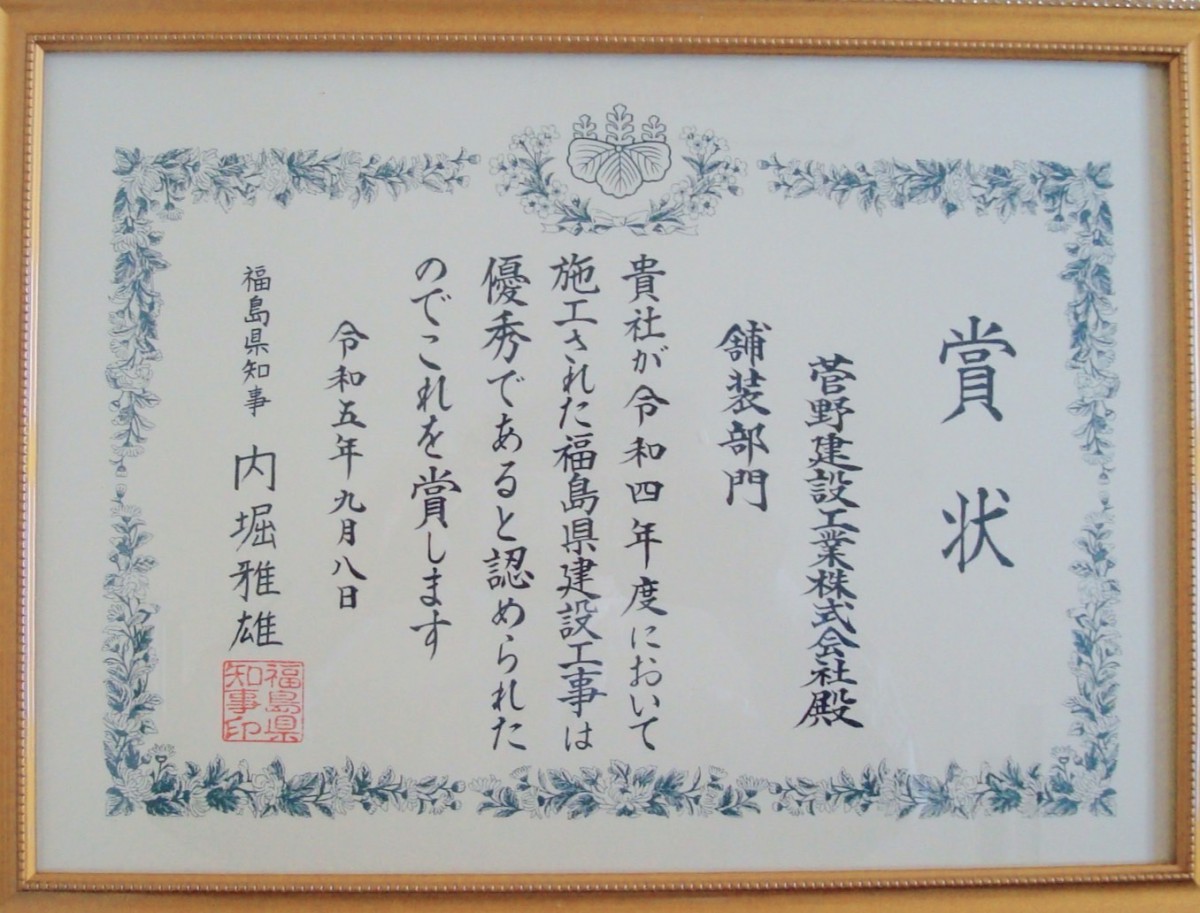 賞状
菅野建設工業株式会社殿
舗装部門
貴社が令和四年度において
施工された福島県建設工事は
優秀であると認められた
のでこれを賞します
令和五年九月八日
福島県知事 内堀雅雄
福島県
知事印